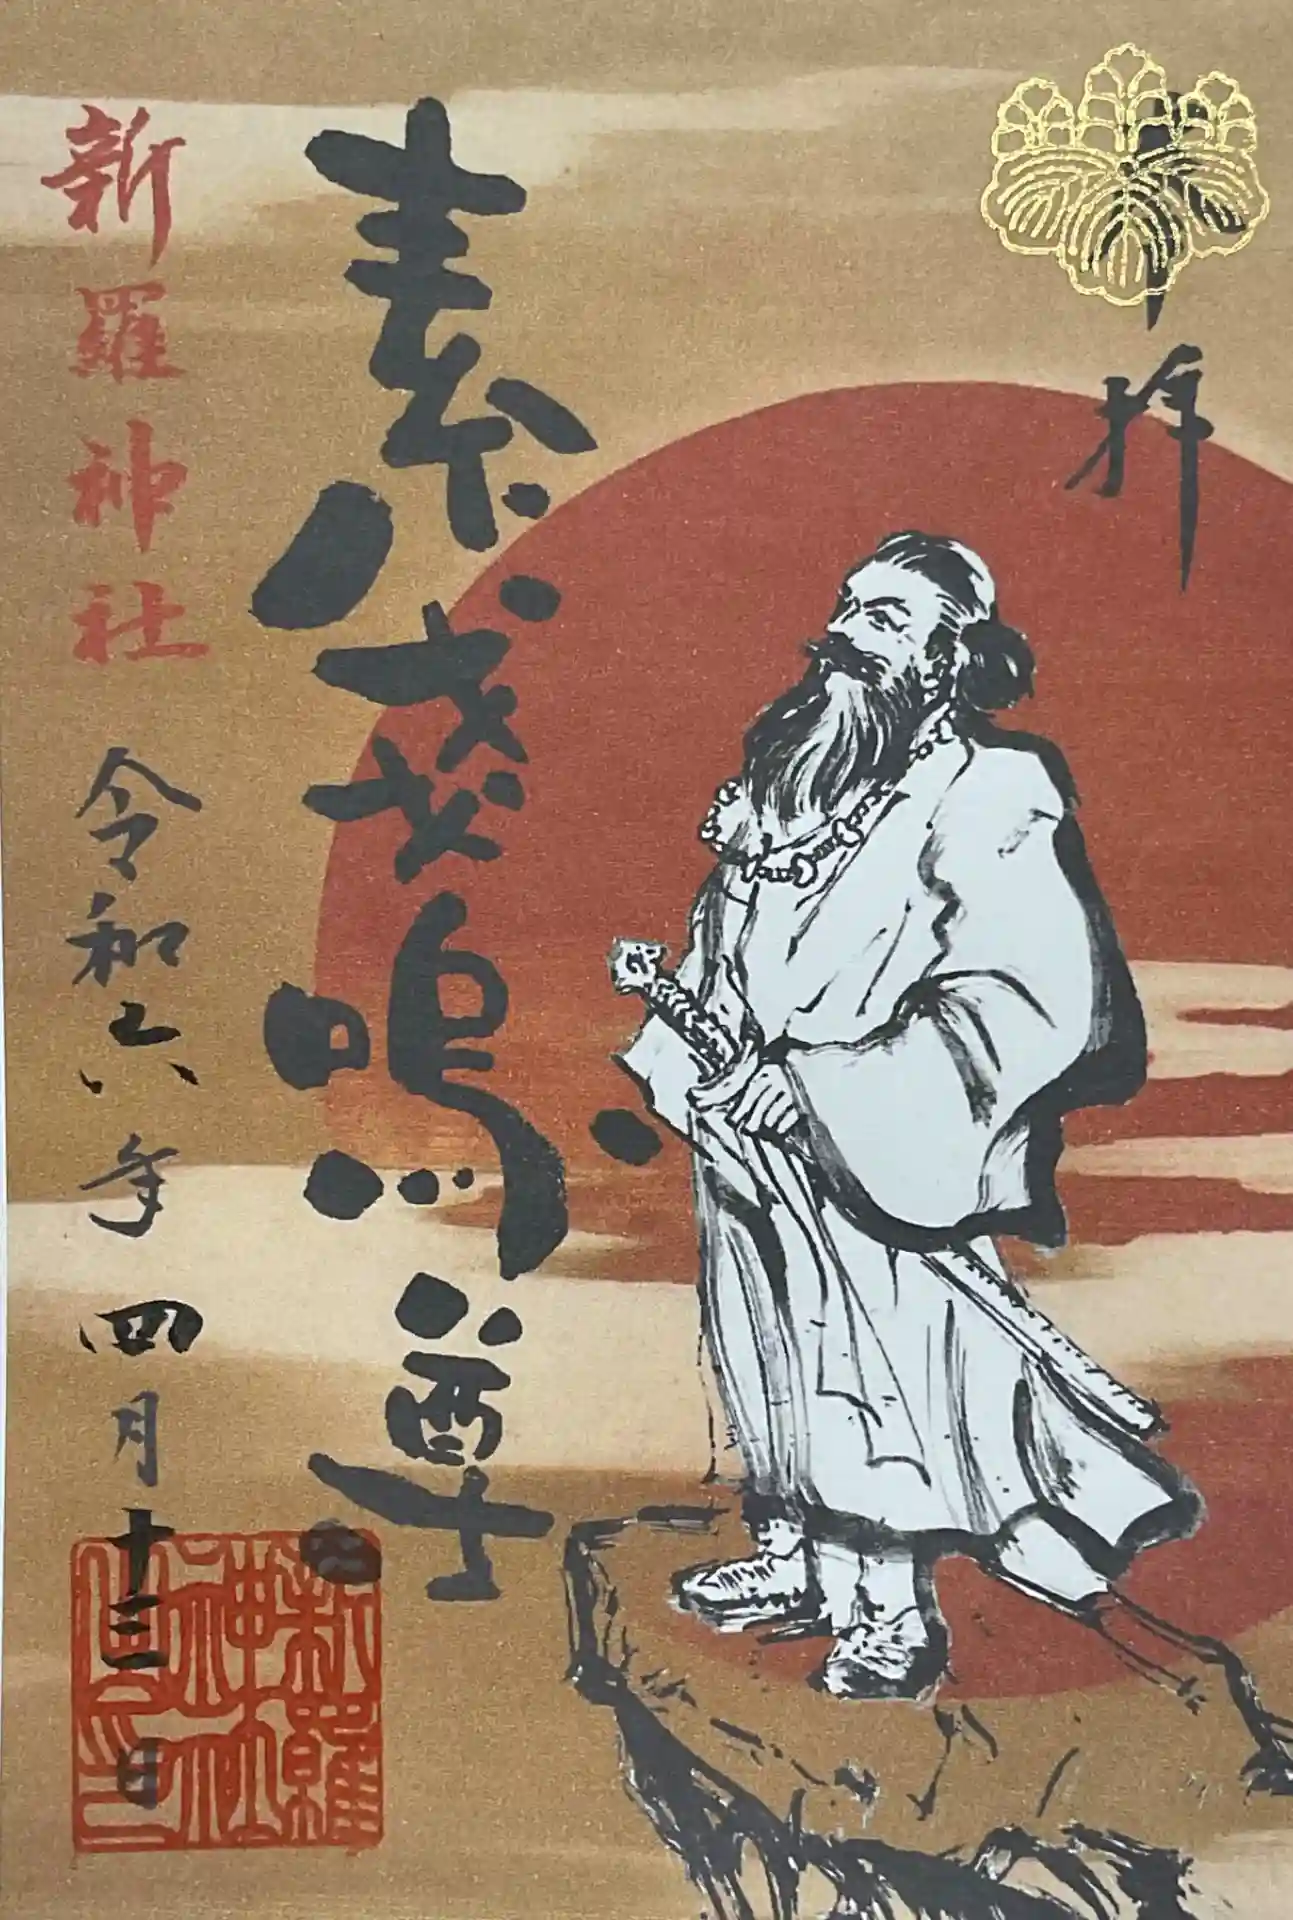 奉拝
素戔嗚尊
新羅神社
令和六年四月十三日
新羅
神社